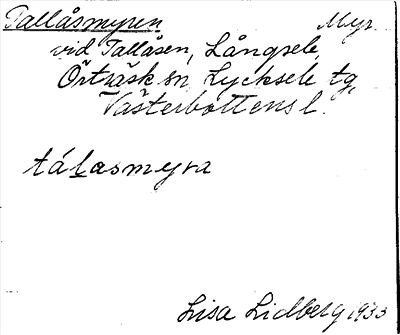 Tallåsmyren Myr
vid Tallåsen, Långsele,
Örträsk sn, Lycksele tg,
Västerbottens l.
tálasmyra
Lisa Lidberg 1933